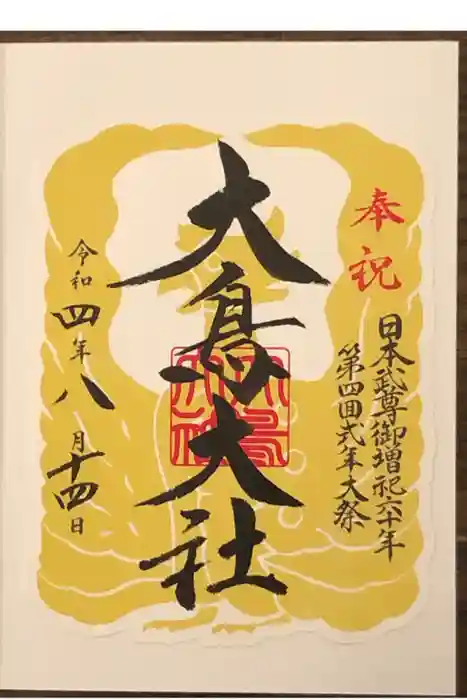 奉祝
日本武尊御増祀六十年
第四回式年大祭
大鳥大社
令和四年八月十四日